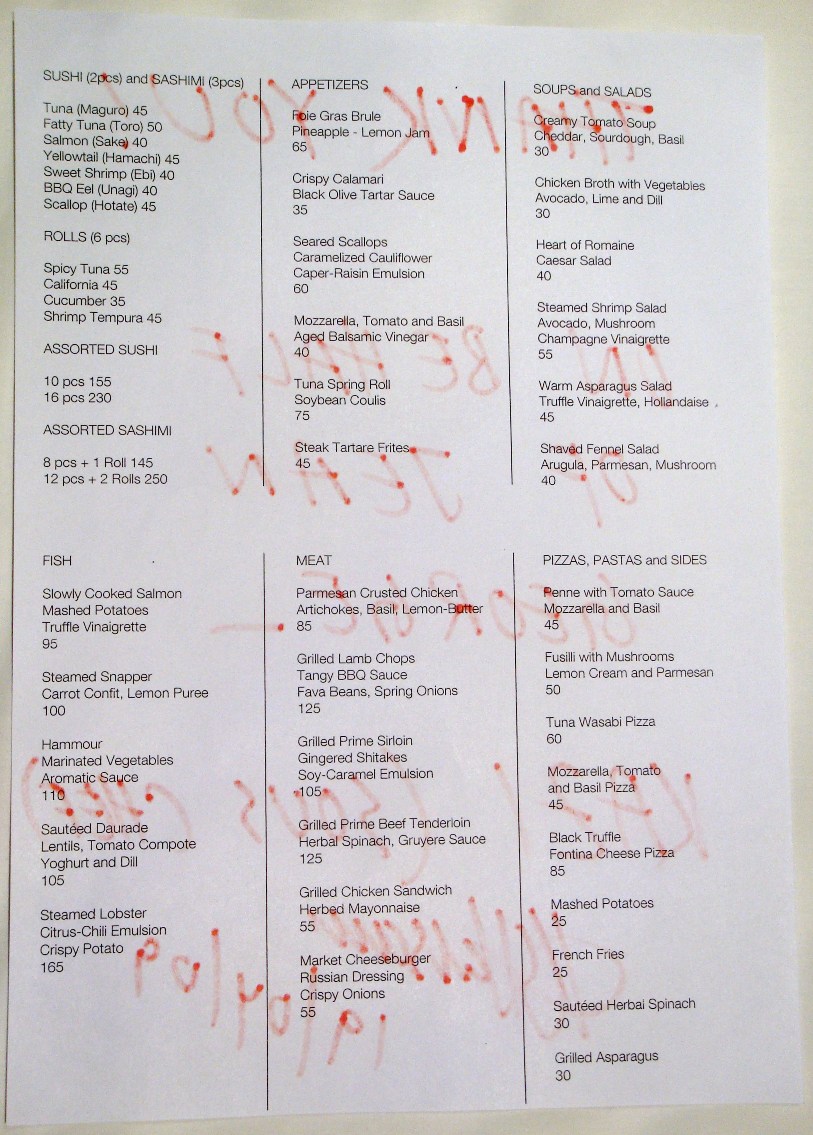 SUSHI (2pcs) and SASHIMI (3pcs)
Tuna (Maguro) 45
Fatty Tuna (Toro) 50
Salmon (Sake) 40
Yellowtail (Hamachi) 45
Sweet Shrimp (Ebi) 40
BBQ Eel (Unagi) 40
Scallop (Hotate) 45
ROLLS (6 pcs)
Spicy Tuna 55
California 45
Cucumber 35
Shrimp Tempura 45
ASSORTED SUSHI
10 pcs 155
16 pcs 230
ASSORTED SASHIMI
8 pcs + 1 Roll 145
12 pcs + 2 Rolls 250
APPETIZERS
Foie Gras Brule
Pineapple - Lemon Jam
65
Crispy Calamari
Black Olive Tartar Sauce
35
Seared Scallops
Caramelized Cauliflower
Caper-Raisin Emulsion
60
Mozzarella, Tomato and Basil
Aged Balsamic Vinegar
40
Tuna Spring Roll
Soybean Coulis
75
Steak Tartare Frites
45
SOUPS and SALADS
Creamy Tomato Soup
Cheddar, Sourdough, Basil
30
Chicken Broth with Vegetables
Avocado, Lime and Dill
30
Heart of Romaine
Caesar Salad
40
Steamed Shrimp Salad
Avocado, Mushroom
Champagne Vinaigrette
55
Warm Asparagus Salad
Truffle Vinaigrette, Hollandaise
45
Shaved Fennel Salad
Arugula, Parmesan, Mushroom
40
FISH
Slowly Cooked Salmon
Mashed Potatoes
Truffle Vinaigrette
95
Steamed Snapper
Carrot Confit, Lemon Puree
100
Hammour
Marinated Vegetables
Aromatic Sauce
110
Sautéed Daurade
Lentils, Tomato Compote
Yoghurt and Dill
105
Steamed Lobster
Citrus-Chili Emulsion
Crispy Potato
165
MEAT
Parmesan Crusted Chicken
Artichokes, Basil, Lemon-Butter
85
Grilled Lamb Chops
Tangy BBQ Sauce
Fava Beans, Spring Onions
125
Grilled Prime Sirloin
Gingered Shitakes
Soy-Caramel Emulsion
105
Grilled Prime Beef Tenderloin
Herbal Spinach, Gruyere Sauce
125
Grilled Chicken Sandwich
Herbed Mayonnaise
55
Market Cheeseburger
Russian Dressing
Crispy Onions
55
PIZZAS, PASTAS and SIDES
Penne with Tomato Sauce
Mozzarella and Basil
45
Fusilli with Mushrooms
Lemon Cream and Parmesan
50
Tuna Wasabi Pizza
60
Mozzarella, Tomato
and Basil Pizza
45
Black Truffle
Fontina Cheese Pizza
85
Mashed Potatoes
25
French Fries
25
Sautéed Herbal Spinach
30
Grilled Asparagus
30
THANK YOU
ON BEHALF
OF JEAN
GEORGE
(SOUS CHEF)
19/04/09